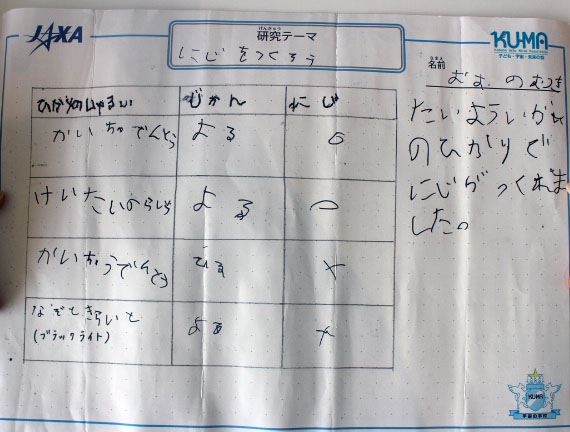 JAXA
けんきゅう
研究テーマ
にじをつくろう
KU-MA
子ども・宇宙・未来の会
なまえ
名前
ひかりのしゅるい じかん にじ
かいちゅでんとう よる ○
けいたいのらいと よる ○
かいちゅうでんとう ひる ×
なぞときらいと
(ブラックライト) よる ×
たいよういがい
のひかりで
にじがつくれま
した。
KUMA
宇宙の学校